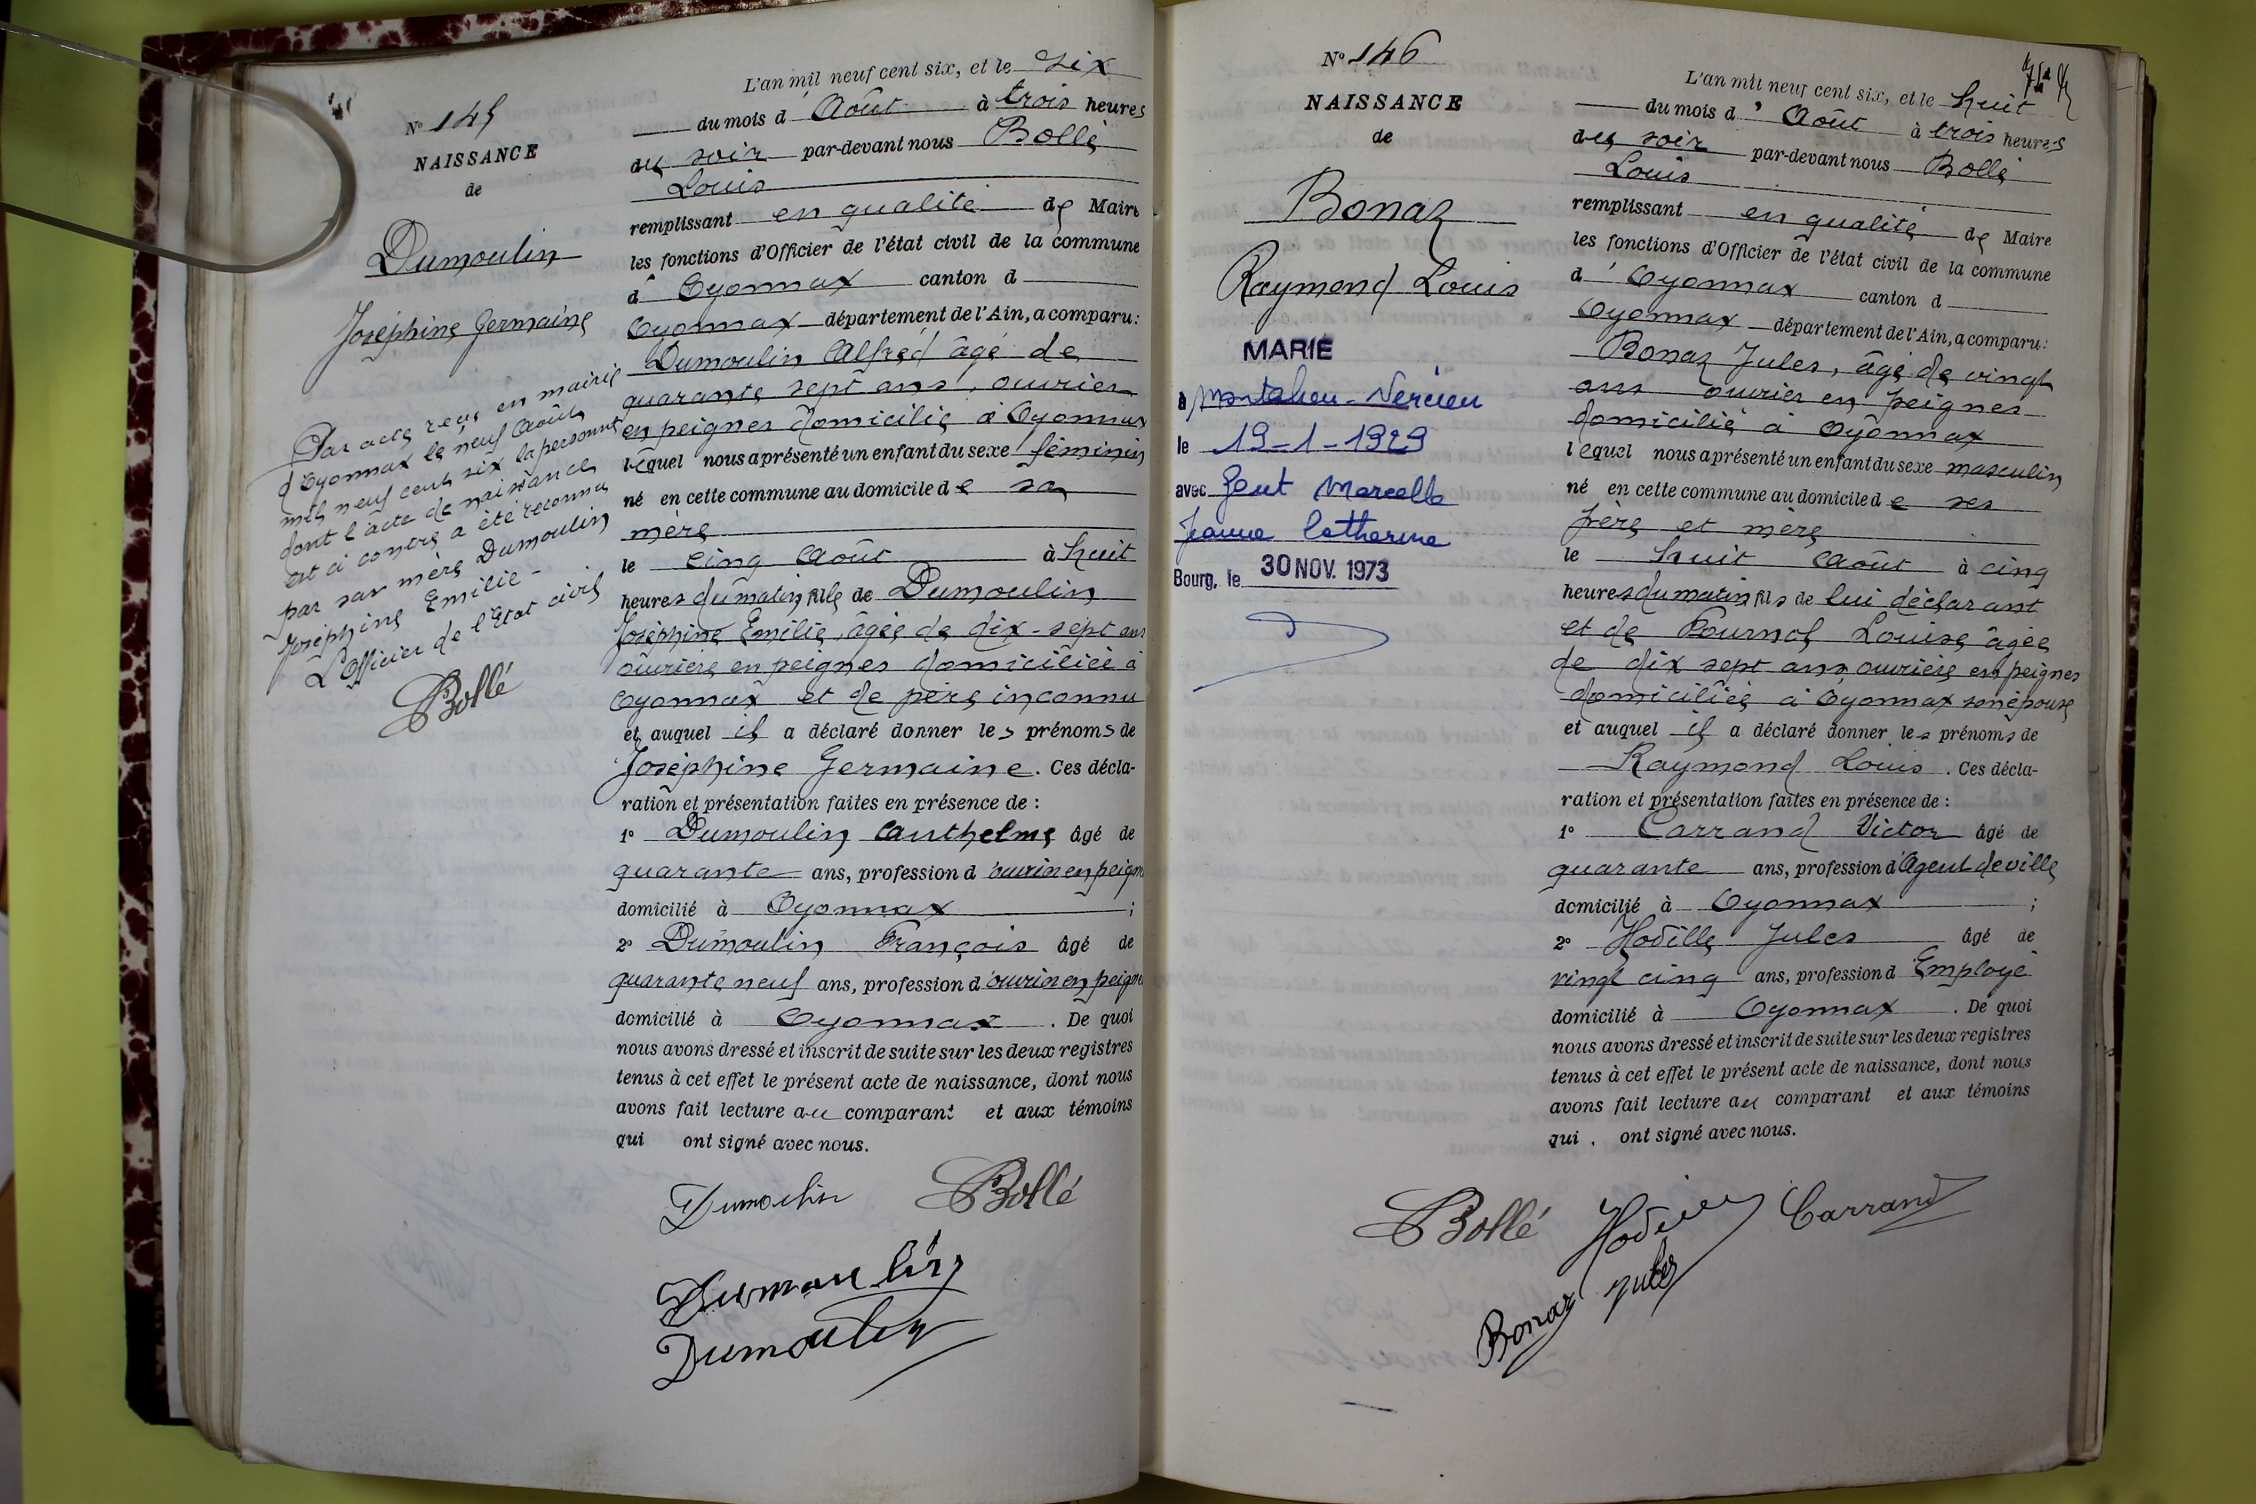 N° 145
NAISSANCE
de
Dumoulin
Joséphine Germaine
Par acte reçu en mairie
d'Oyonnax le neuf Août
mil neuf cent six la personne
dont l'acte de naissance
est ci contre a été reconnue
par sa mère Dumoulin
Joséphine Emilie -
L'Officier de l'Etat civil
Bollé
L'an mil neuf cent six, et le six
du mois d'Août à trois heures
du soir par-devant nous Bollé
Louis
remplissant en qualité de Maire
les fonctions d'Officier de l'état civil de la commune
d'Oyonnax canton d
Oyonnax département de l'Ain, a comparu :
Dumoulin Alfred âgé de
quarante sept ans, ouvrier
en peignes domicilié à Oyonnax
lequel nous a présenté un enfant du sexe féminin
né en cette commune au domicile de sa
mère
le cinq Août à huit
heures du matin fille de Dumoulin
Joséphine Emilie, âgée de dix-sept ans
ouvrière en peignes domiciliée à
Oyonnax et de père inconnu
et auquel il a déclaré donner les prénoms de
Joséphine Germaine. Ces décla-
ration et présentation faites en présence de :
1° Dumoulin Anthelme âgé de
quarante ans, profession d'ouvrier en peignes
domicilié à Oyonnax ;
2° Dumoulin François âgé de
quarante neuf ans, profession d'ouvrier en peignes
domicilié à Oyonnax. De quoi
nous avons dressé et inscrit de suite sur les deux registres
tenus à cet effet le présent acte de naissance, dont nous
avons fait lecture au comparant et aux témoins
qui ont signé avec nous.
Dumoulin Bollé
Dumoulin
Dumoulin
N° 146
NAISSANCE
de
Bonaz
Raymond Louis
MARIÉ
à Montalieu-Vercieu
le 19-1-1929
avec Gent Marcelle
Jeanne Catherine
Bourg, le 30 NOV. 1973
L'an mil neuf cent six, et le huit
du mois d'Août à trois heures
du soir par-devant nous Bollé
Louis
remplissant en qualité de Maire
les fonctions d'Officier de l'état civil de la commune
d'Oyonnax canton d
Oyonnax département de l'Ain, a comparu :
Bonaz Jules, âgé de vingt
ans ouvrier en peignes
domicilié à Oyonnax
lequel nous a présenté un enfant du sexe masculin
né en cette commune au domicile de ses
père et mère
le huit Août à cinq
heures du matin fils de lui déclarant
et de Louise âgée
de dix sept ans ouvrière en peignes
domiciliée à Oyonnax son épouse
et auquel il a déclaré donner les prénoms de
Raymond Louis. Ces décla-
ration et présentation faites en présence de :
1° Carrand Victor âgé de
quarante ans, profession d'Agent de ville
domicilié à Oyonnax ;
2° Jules âgé de
vingt cinq ans, profession d Employé
domicilié à Oyonnax. De quoi
nous avons dressé et inscrit de suite sur les deux registres
tenus à cet effet le présent acte de naissance, dont nous
avons fait lecture au comparant et aux témoins
qui . ont signé avec nous.
Bollé Carrand
Bonaz Jules